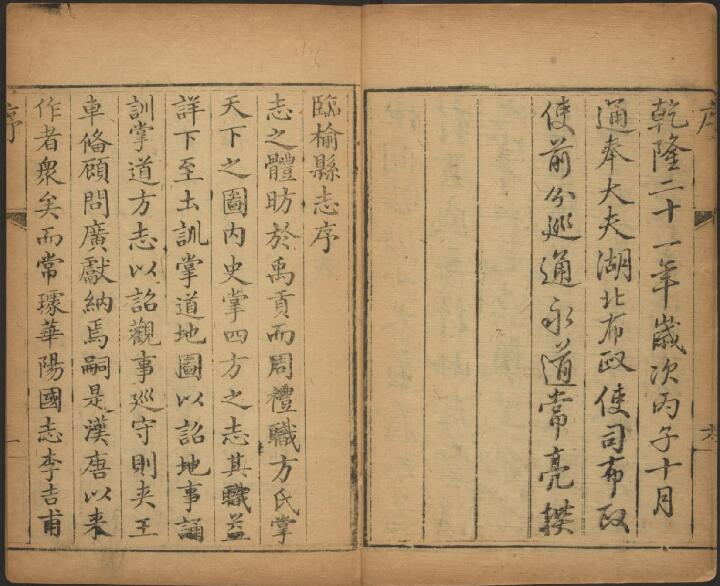 序
乾隆二十一年歲次丙子十月
通奉大夫湖北布政使司布政
使前分巡通永道常亮撰
臨榆縣志序
志之體昉於禹貢而周禮職方氏掌
天下之圖內史掌四方之志其職益
詳下至土訓掌道地圖以詔地事誦
訓掌道方志以詔觀事廵守則夾王
車僃顧問廣獻納焉嗣是漢唐以来
作者衆矣而常璩華陽國志李吉甫
序
一